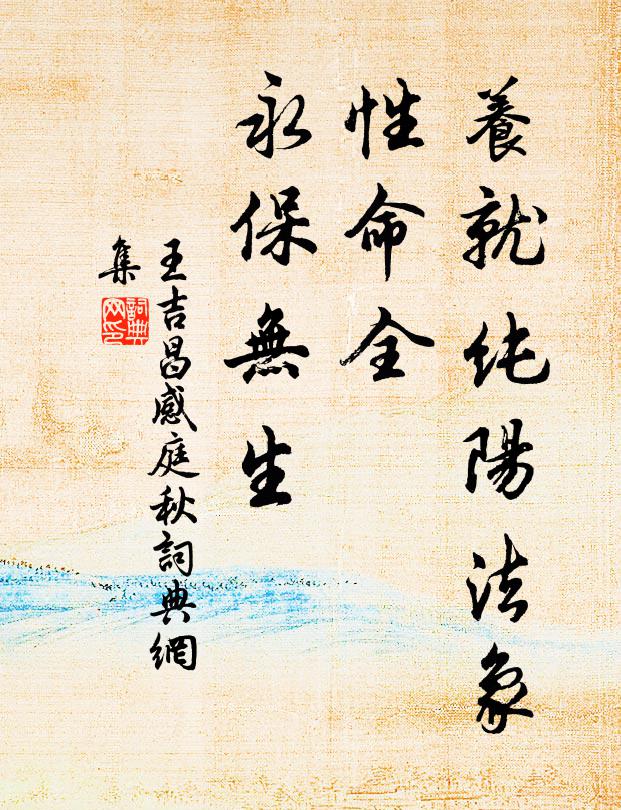 養就純陽法象
性命全
永保無生
王吉昌感庭秋詞典網
集
詞典网印